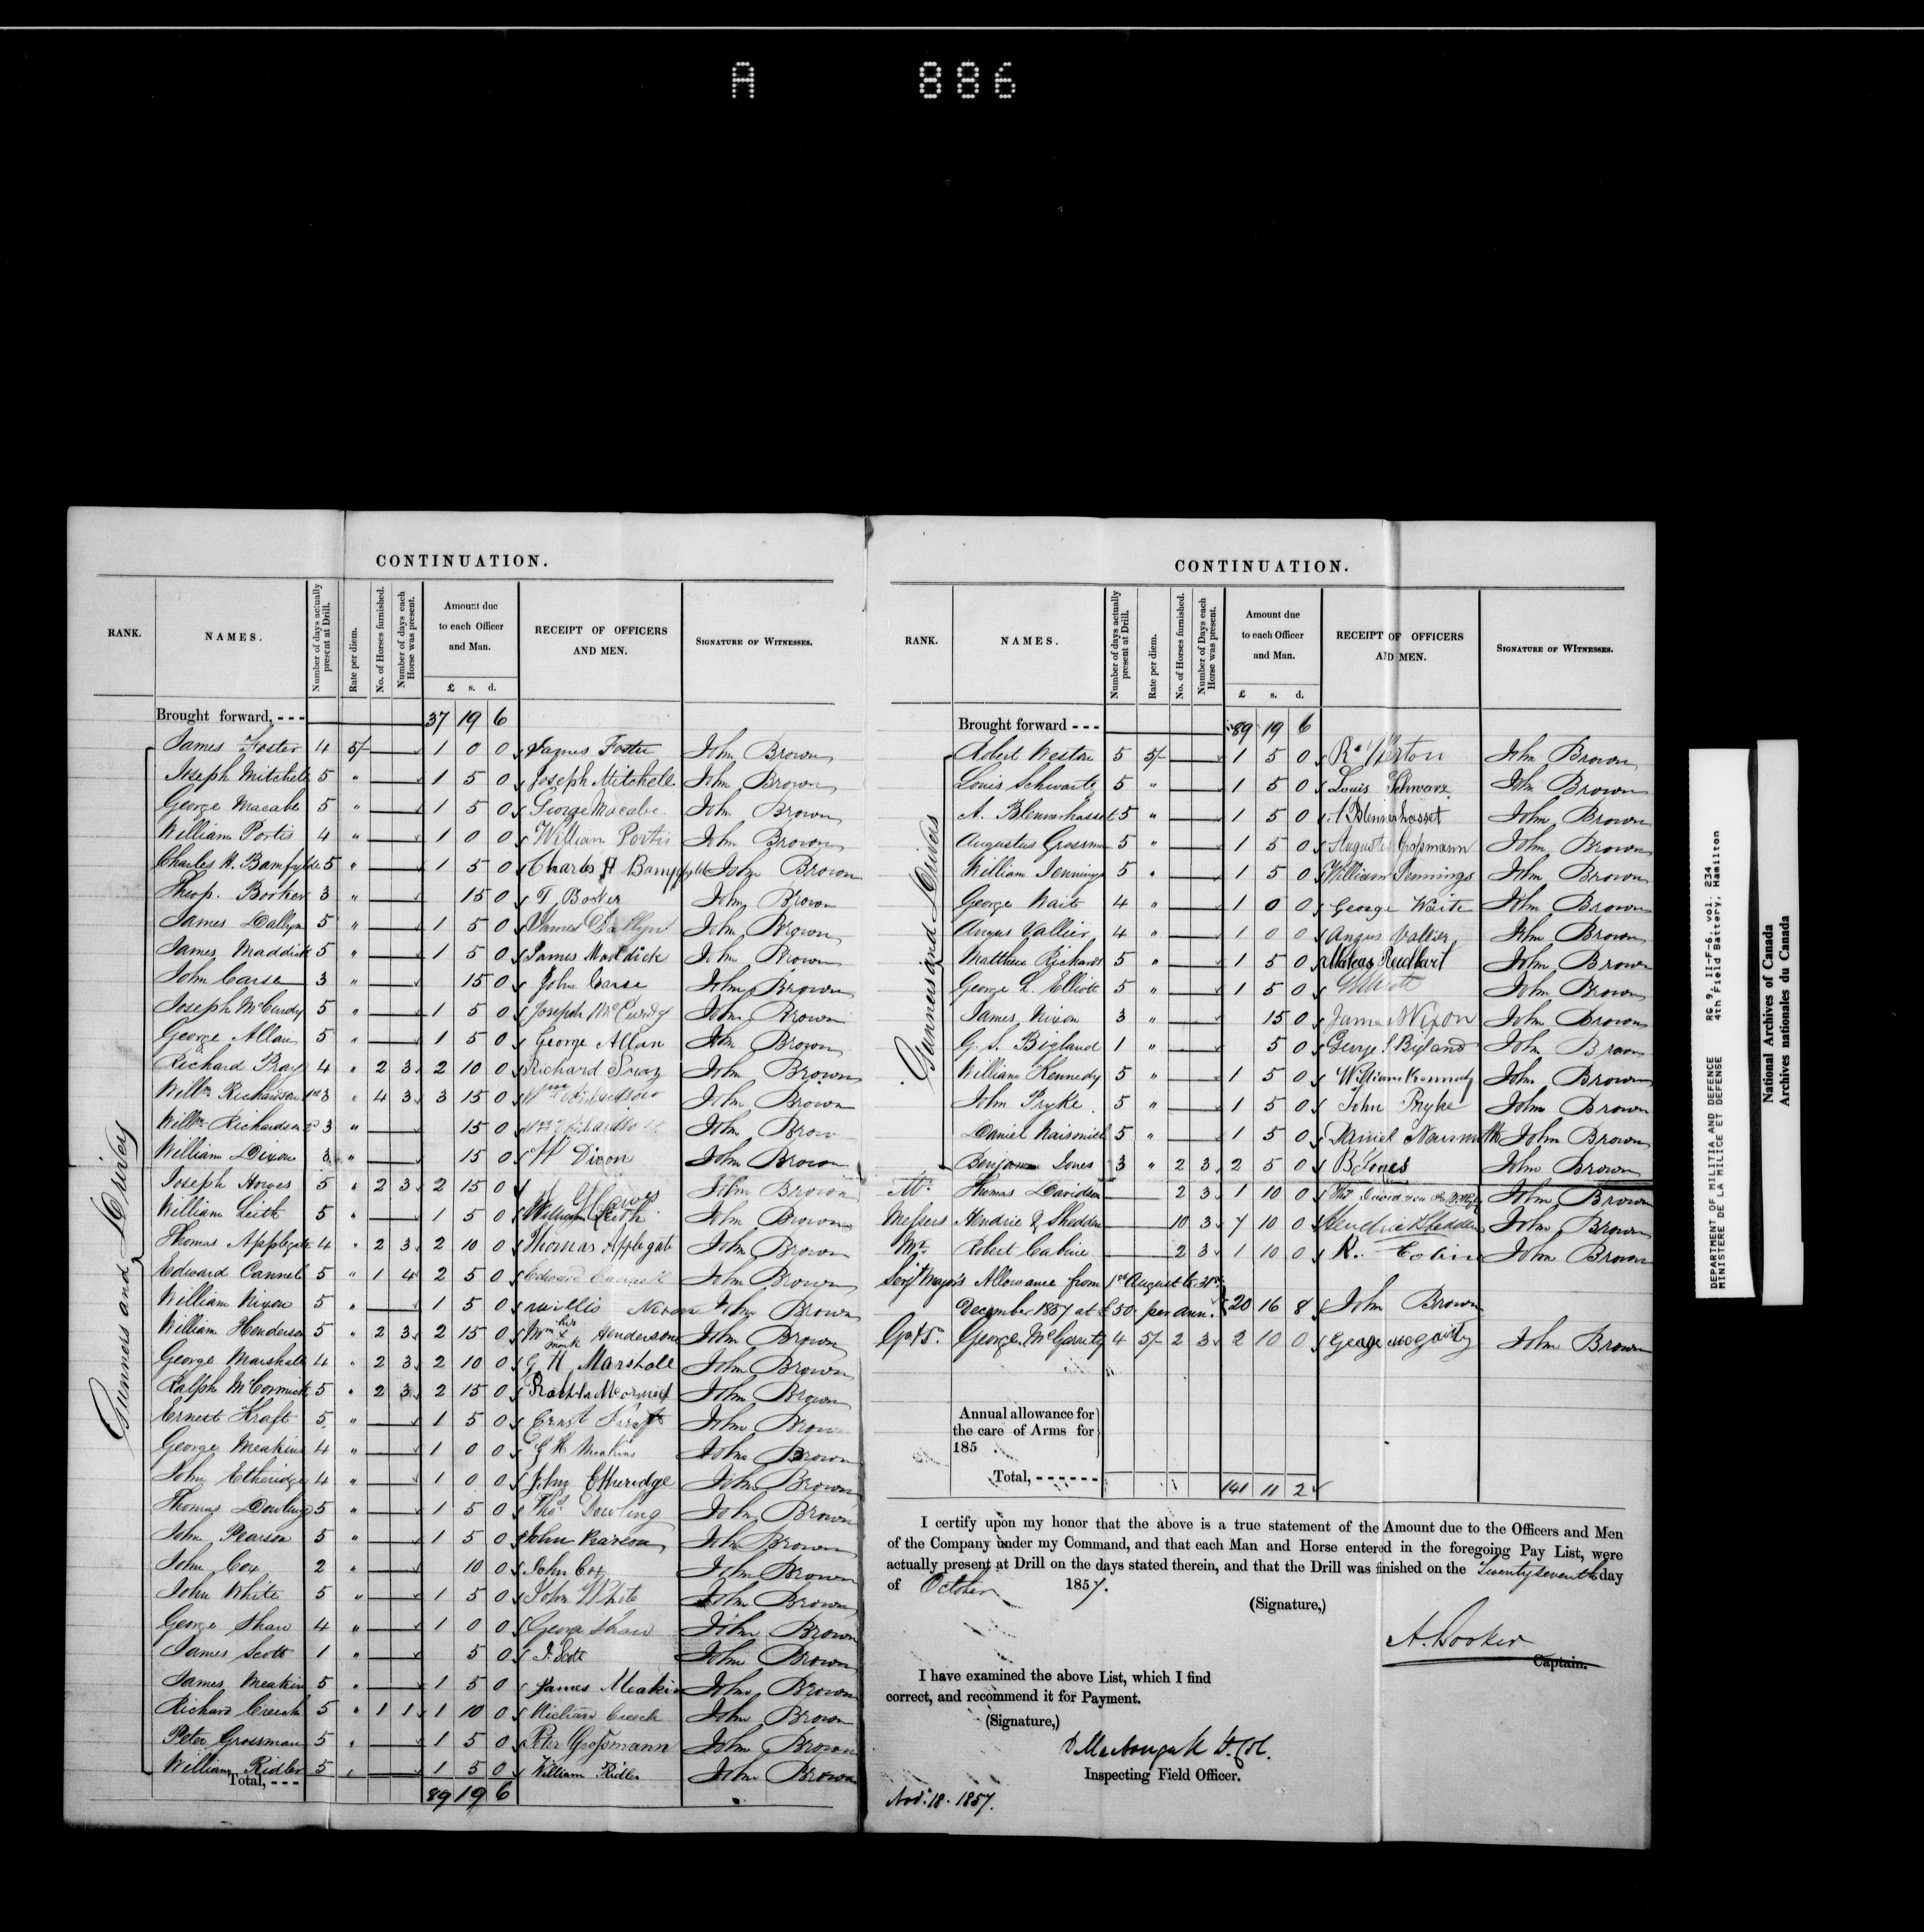 A 886
CONTINUATION.
RANK. NAMES. Number of days actually present at Drill. Rate per diem. No. of Horses furnished. Number of days each Horse was present. Amount due to each Officer and Man. £ s. d. RECEIPT OF OFFICERS AND MEN. SIGNATURE OF WITNESSES.
Brought forward, - - - 37 19 6
Gunners and Drivers
James Foster 4 5/- 1 0 0 James Foster John Brown
Joseph Mitchell 5 " 1 5 0 Joseph Mitchell John Brown
George Macabe 5 " 1 5 0 George Macabe John Brown
William Portis 4 " 1 0 0 William Portis John Brown
Charles H. Bamfylde 5 " 1 5 0 Charles H Bampfylde John Brown
Theop. Booker 3 " 15 0 T Booker John Brown
James Dallyn 5 " 1 5 0 James Dallyn John Brown
James Maddick 5 " 1 5 0 James Maddick John Brown
John Carse 3 " 15 0 John Carse John Brown
Joseph McCurdy 5 " 1 5 0 Joseph McCurdy John Brown
George Allan 5 " 1 5 0 George Allan John Brown
Richard Pray 4 " 2 3 2 10 0 Richard Pray John Brown
Willm Richardson 1st 3 " 4 3 3 15 0 Wm Richardson John Brown
Willm Richardson 2d 3 " 15 0 John Brown
William Dixon 3 " 15 0 W Dixon John Brown
Joseph Howes 5 " 2 3 2 15 0 Howes John Brown
William Leith 5 " 1 5 0 William Leith John Brown
Thomas Applegate 4 " 2 3 2 10 0 Thomas Applegate John Brown
Edward Cannell 5 " 1 4 2 5 0 Edward Cannell John Brown
William Nixon 5 " 1 5 0 Nixon John Brown
William Henderson 5 " 2 3 2 15 0 Wm his x mark Henderson John Brown
George Marshall 4 " 2 3 2 10 0 G H Marshall John Brown
Ralph McCormick 5 " 2 3 2 15 0 John Brown
Ernest Kraft 5 " 1 5 0 Ernst Kraft John Brown
George Meakins 4 " 1 0 0 G H Meakins John Brown
John Etheridge 4 " 1 0 0 John Etheridge John Brown
Thomas Dowling 5 " 1 5 0 Thos Dowling John Brown
John Pearson 5 " 1 5 0 John Pearson John Brown
John Cox 2 " 10 0 John Cox John Brown
John White 5 " 1 5 0 John White John Brown
George Shaw 4 " 1 0 0 George Shaw John Brown
James Scott 1 " 5 0 J. Scott John Brown
James Meakin 5 " 1 5 0 James Meakin John Brown
Richard Creech 5 " 1 1 1 10 0 Richard Creech John Brown
Peter Grossman 5 " 1 5 0 Peter Großmann John Brown
William Ridler 5 " 1 5 0 William Ridler John Brown
Total, - - - 89 19 6
CONTINUATION.
RANK. NAMES. Number of days actually present at Drill. Rate per diem. No. of Horses furnished. Number of Days each Horse was present. Amount due to each Officer and Man. £ s. d. RECEIPT OF OFFICERS AND MEN. SIGNATURE OF WITNESSES.
Brought forward - - - 89 19 6
Gunners and Drivers
Robert Weston 5 5/- 1 5 0 John Brown
Louis Schwartz 5 " 1 5 0 Louis Schwarz John Brown
A. Blennerhasset 5 " 1 5 0 A Blennerhasset John Brown
Augustus Grossman 5 " 1 5 0 August Großmann John Brown
William Jennings 5 " 1 5 0 William Jennings John Brown
George Wait 4 " 1 0 0 George Waite John Brown
Angus Vallier 4 " 1 0 0 Angus Vallier John Brown
Matthew Richards 5 " 1 5 0 John Brown
George L. Elliott 5 " 1 5 0 Elliott John Brown
James Nixon 3 " 15 0 James Nixon John Brown
G. S. Bigland 1 " 5 0 George S Bigland John Brown
William Kennedy 5 " 1 5 0 William Kennedy John Brown
John Pryke 5 " 1 5 0 John Pryke John Brown
Daniel Naismith 5 " 1 5 0 Daniel Naismith John Brown
Benjamin Jones 3 " 2 3 2 5 0 B Jones John Brown
Mr. Thomas Davidson 2 3 1 10 0 Thos Davidson John Brown
Messrs Hendrie & Shedden 10 3 7 10 0 Hendrie & Shedden John Brown
Mr. Robert Cabine 2 3 1 10 0 R. John Brown
Sergt Major's Allowance from 1st August to 31st
December 1857 at £50 per ann. 20 16 8 John Brown
Gr & D. George McGarrity 4 5/- 2 3 2 10 0 John Brown
Annual allowance for
the care of Arms for
185
Total, - - - - - - 141 11 2
I certify upon my honor that the above is a true statement of the Amount due to the Officers and Men
of the Company under my Command, and that each Man and Horse entered in the foregoing Pay List, were
actually present at Drill on the days stated therein, and that the Drill was finished on the Twenty seventh day
of October 1857.
(Signature,)
A. Booker
Captain.
I have examined the above List, which I find
correct, and recommend it for Payment.
(Signature,)
D MacDougall Lt. Col.
Inspecting Field Officer.
Nov. 18. 1857.
DEPARTMENT OF MILITIA AND DEFENCE RG 9, II-F-6, vol. 234
MINISTERE DE LA MILICE ET DEFENSE 4th Field Battery, Hamilton
National Archives of Canada
Archives nationales du Canada